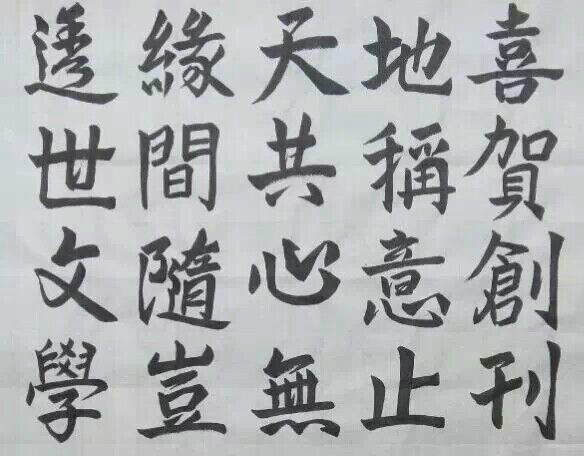 透緣天地喜
世間共稱賀
文隨心意創
學豈無止刊